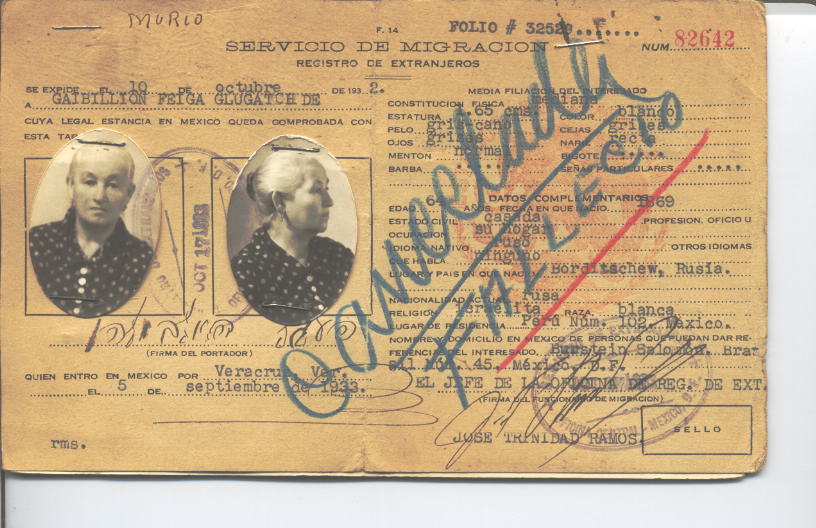 MURIO
F. 14
FOLIO # 32529.......
SERVICIO DE MIGRACION
NUM. 82642
REGISTRO DE EXTRANJEROS
SE EXPIDE EL 10 DE octubre DE 193 2.
A GAIBILLION FEIGA GLUGATCH DE
CUYA LEGAL ESTANCIA EN MEXICO QUEDA COMPROBADA CON
ESTA TAR
OCT 17 1933
(FIRMA DEL PORTADOR)
QUIEN ENTRO EN MEXICO POR Veracruz, Ver.
EL 5 DE septiembre de 1933.
rms.
MEDIA FILIACION DEL INTERESADO
CONSTITUCION FISICA mediana
ESTATURA 65 cms. COLOR blanco
PELO gris-cano CEJAS grises
OJOS grises NARIZ recta
MENTON normal BIGOTE .....
BARBA ..... SEÑAS PARTICULARES .....
DATOS COMPLEMENTARIOS
EDAD 64 AÑOS. FECHA EN QUE NACIO 1869
ESTADO CIVIL casada PROFESION, OFICIO U
OCUPACION su hogar
IDIOMA NATIVO ruso OTROS IDIOMAS
QUE HABLA ninguno
LUGAR Y PAIS EN QUE NACIO Borditschew, Rusia.
NACIONALIDAD ACTUAL rusa
RELIGION israelita RAZA blanca
LUGAR DE RESIDENCIA Perú Núm. 102. México.
NOMBRE Y DOMICILIO EN MEXICO DE PERSONAS QUE PUEDAN DAR RE-
FERENCIAS DEL INTERESADO. Burstein Salomón. Bra-
sil 64 45. México, D.F.
EL JEFE DE LA OFICINA DE REG. DE EXT.
(FIRMA DEL FUNCIONARIO DE MIGRACION)
JOSE TRINIDAD RAMOS.
SELLO
Cancelada
FALLECIO